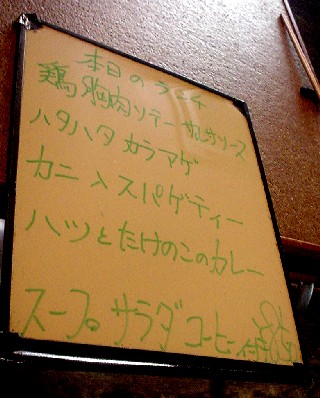 本日のランチ
鶏胸肉ソテー ソース
ハタハタカラアゲ
カニ入スパゲティー
ハツとたけのこのカレー
スープ。サラダ コーヒー付